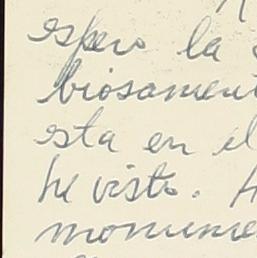 espero la
biosament
esta en el
he visto.
monume